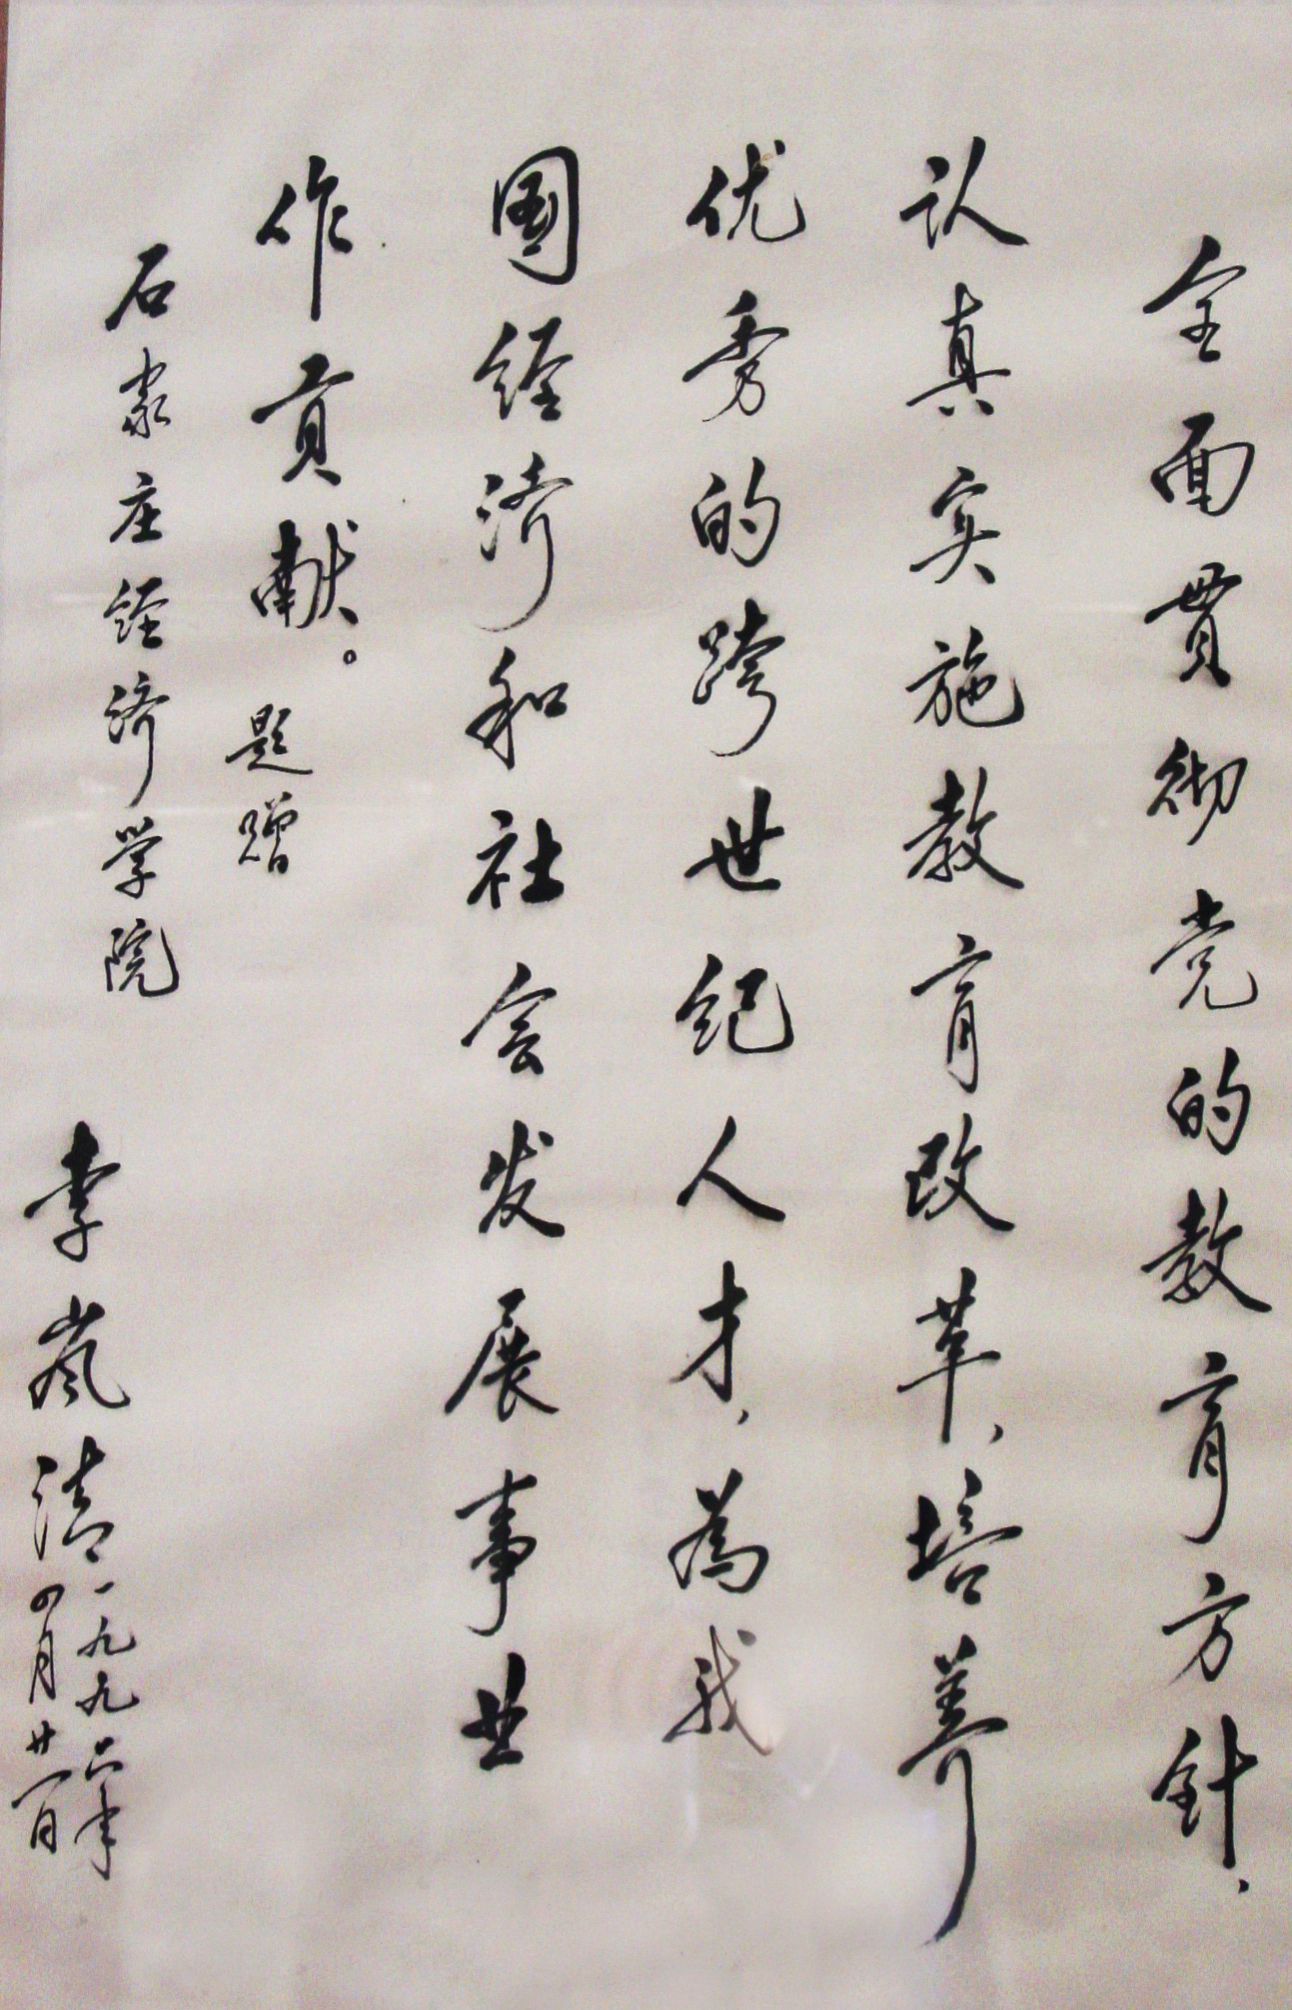 全面贯彻党的教育方针、
认真实施教育改革、培养
优秀的跨世纪人才，為我
國经济和社会发展事业
作贡献。题赠
石家庄经济学院
李岚清
一九九六年
四月廿一日